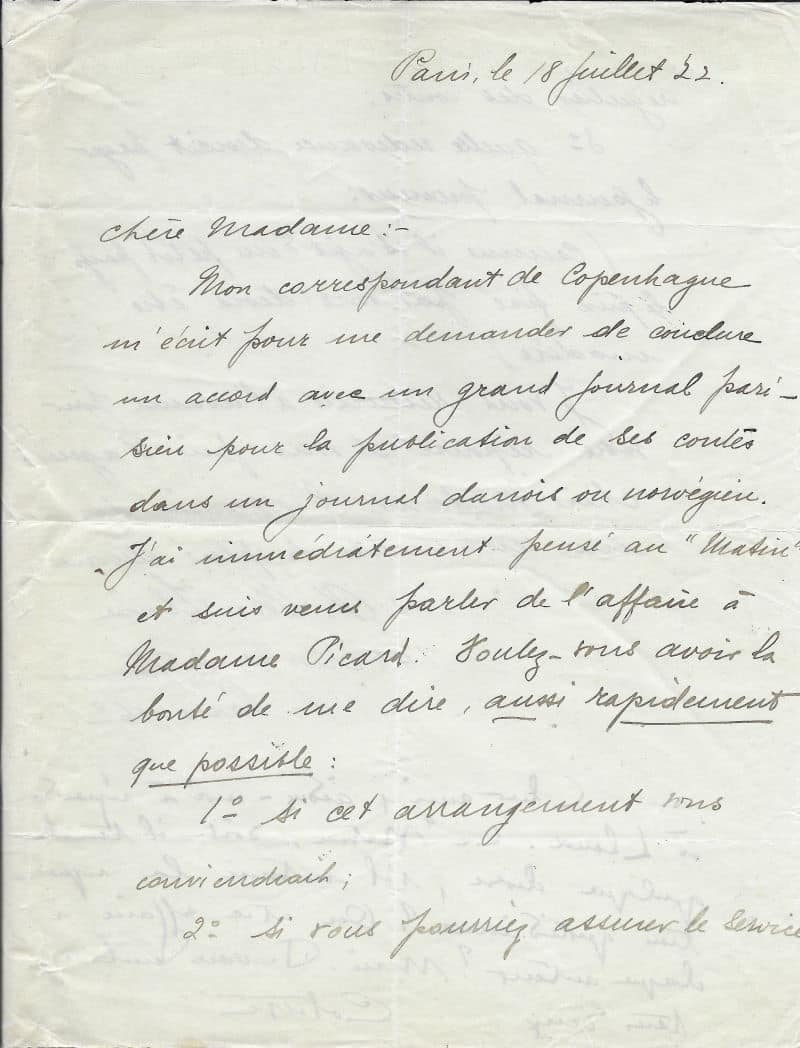 Paris, le 18 Juillet 22.
Chère Madame :-
Mon correspondant de Copenhague
m'écrit pour me demander de conclure
un accord avec un grand journal pari-
sien pour la publication de ses contes
dans un journal danois ou norvégien.
J'ai immédiatement pensé au "Matin"
et suis venu parler de l'affaire à
Madame Picard. Voulez-vous avoir la
bonté de me dire, aussi rapidement
que possible :
1º si cet arrangement vous
conviendrait ;
2º si vous pourriez assurer le service